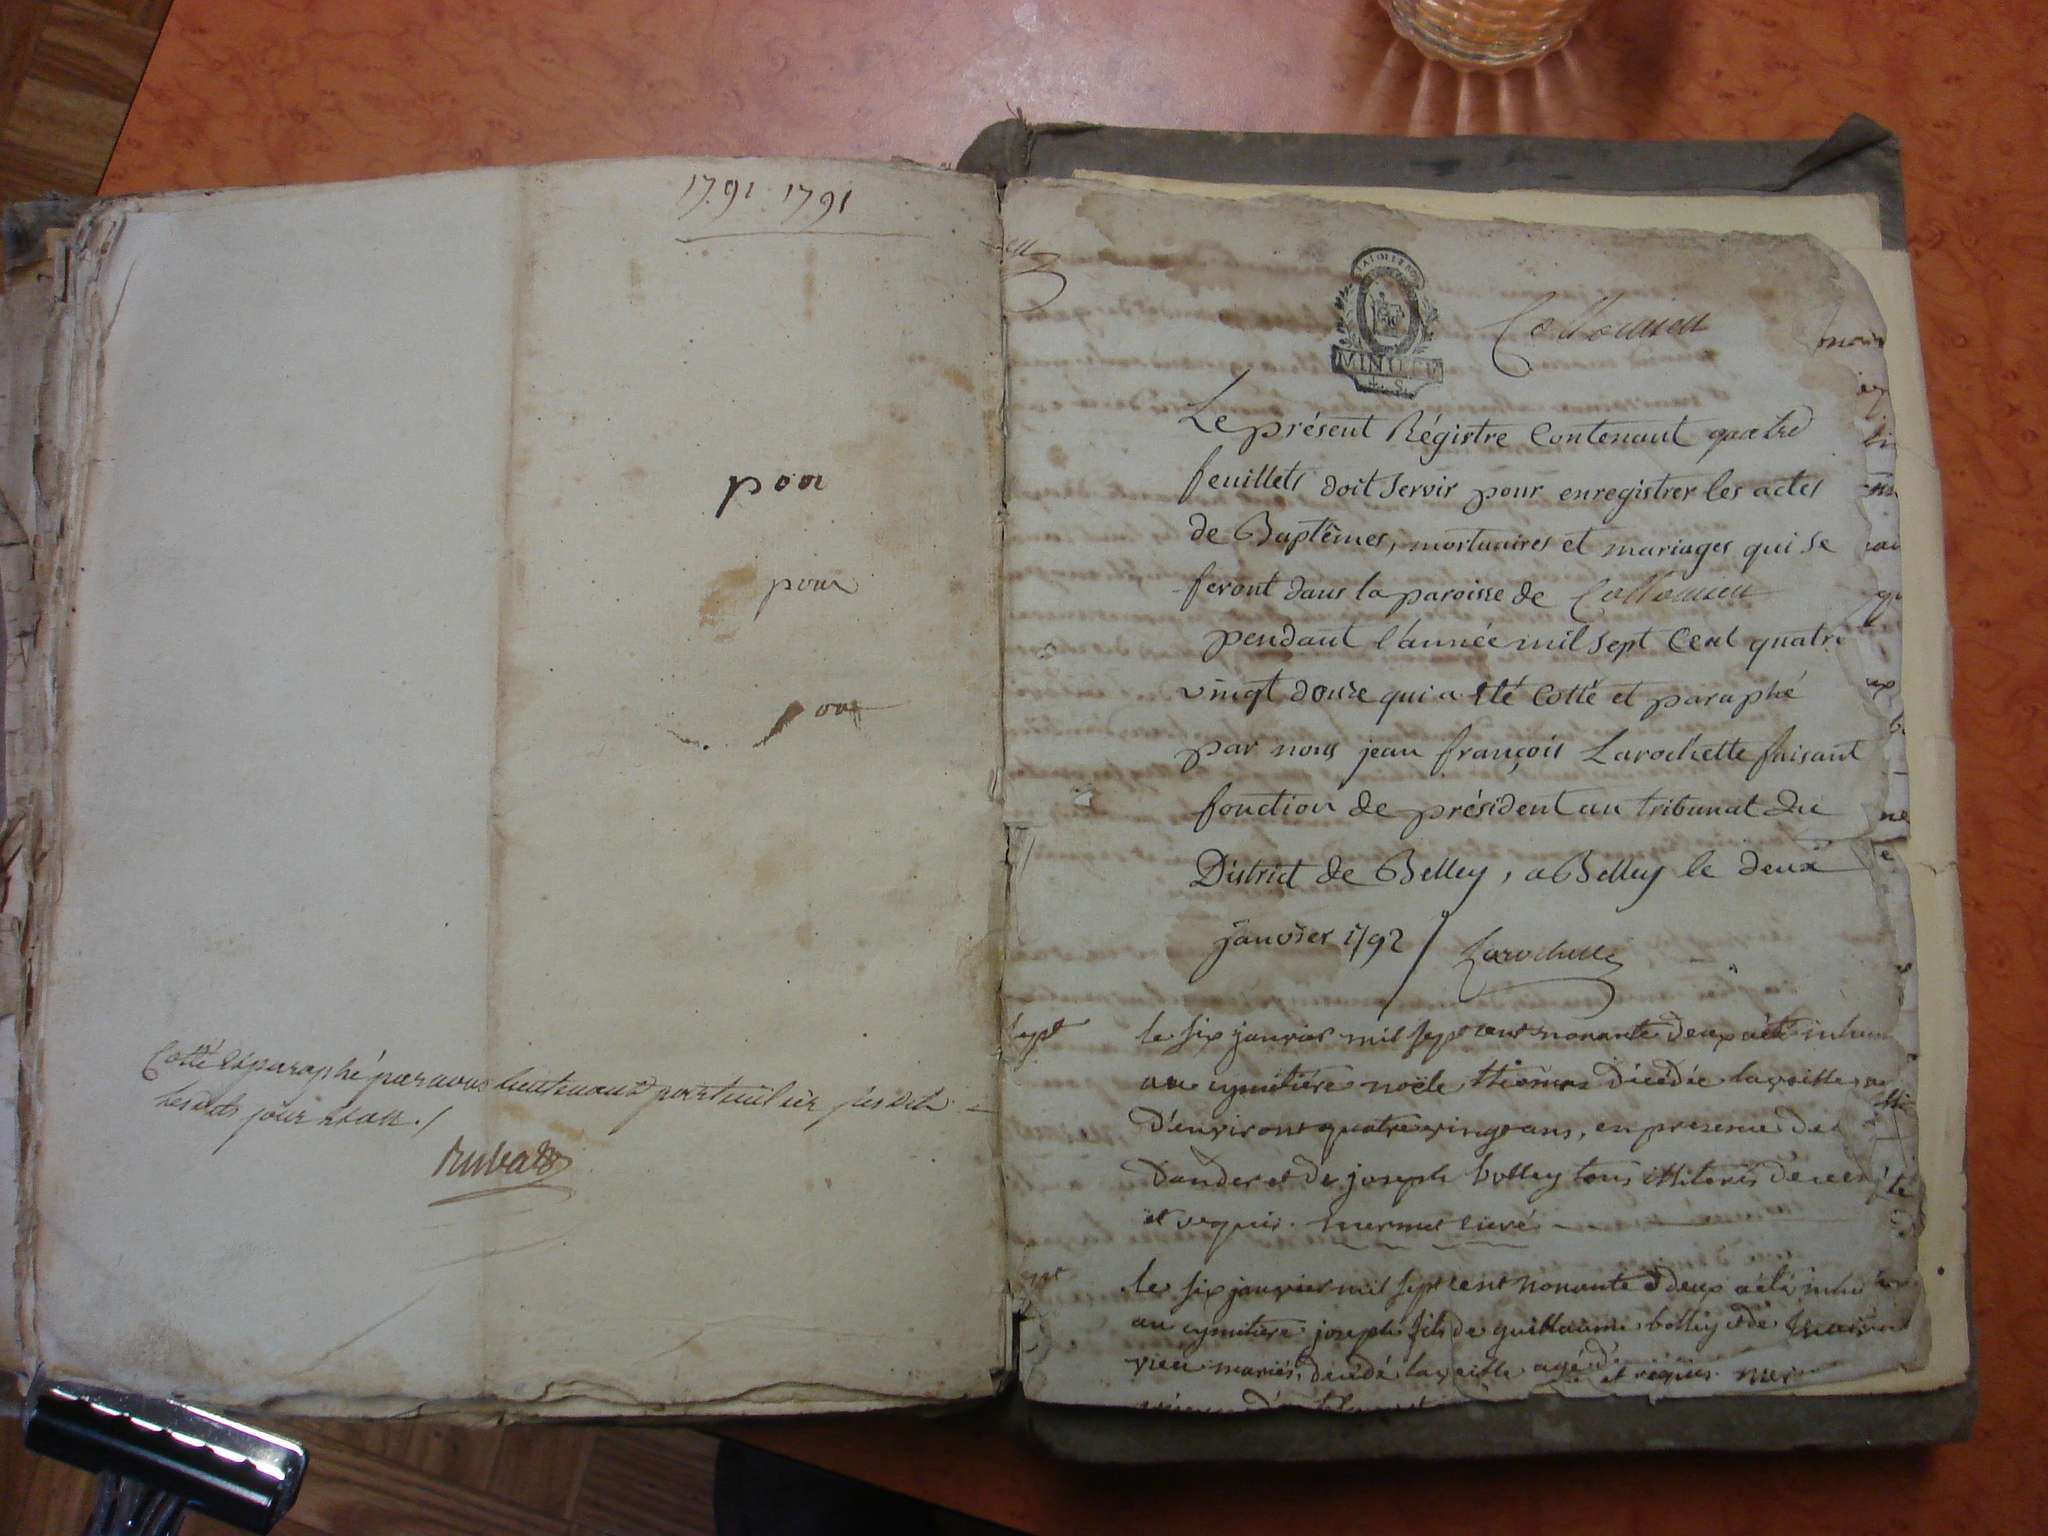 1791 1791
pour
pour
pour
Cotté et paraphé par nous lieutenant particulier susdit
lesdits jour et an ./.
Rubat
LA LOI ET LE ROI
MINUTE
4. S.
Collomieu
Le présent Régistre Contenant quatre
feuillets doit servir pour enregistrer les actes
de Baptêmes, mortuaires et mariages qui se
feront dans la paroisse de Collomieu
pendant l'année mil sept Cent quatre
vingt douze qui a été Cotté et paraphé
par nous jean françois Larochette faisant
fonction de président au tribunal du
District de Belley, a Belley le deux
janvier 1792 / Larochette
Sept
le six janvier mil sept cent nonante deux a été inhum
au cymitière noële thomas décédée la veille a
d'environt quatre vingt ans, en presence de
Dander et de joseph bolley tous illiterés de ce en
et requis. mermet curé
le six janvier mil sept cent nonante deux a été inhu
au cymitière joseph fils de guillaume bolley et de
vieu mariés, décédé la veille agé d' et requis. mer